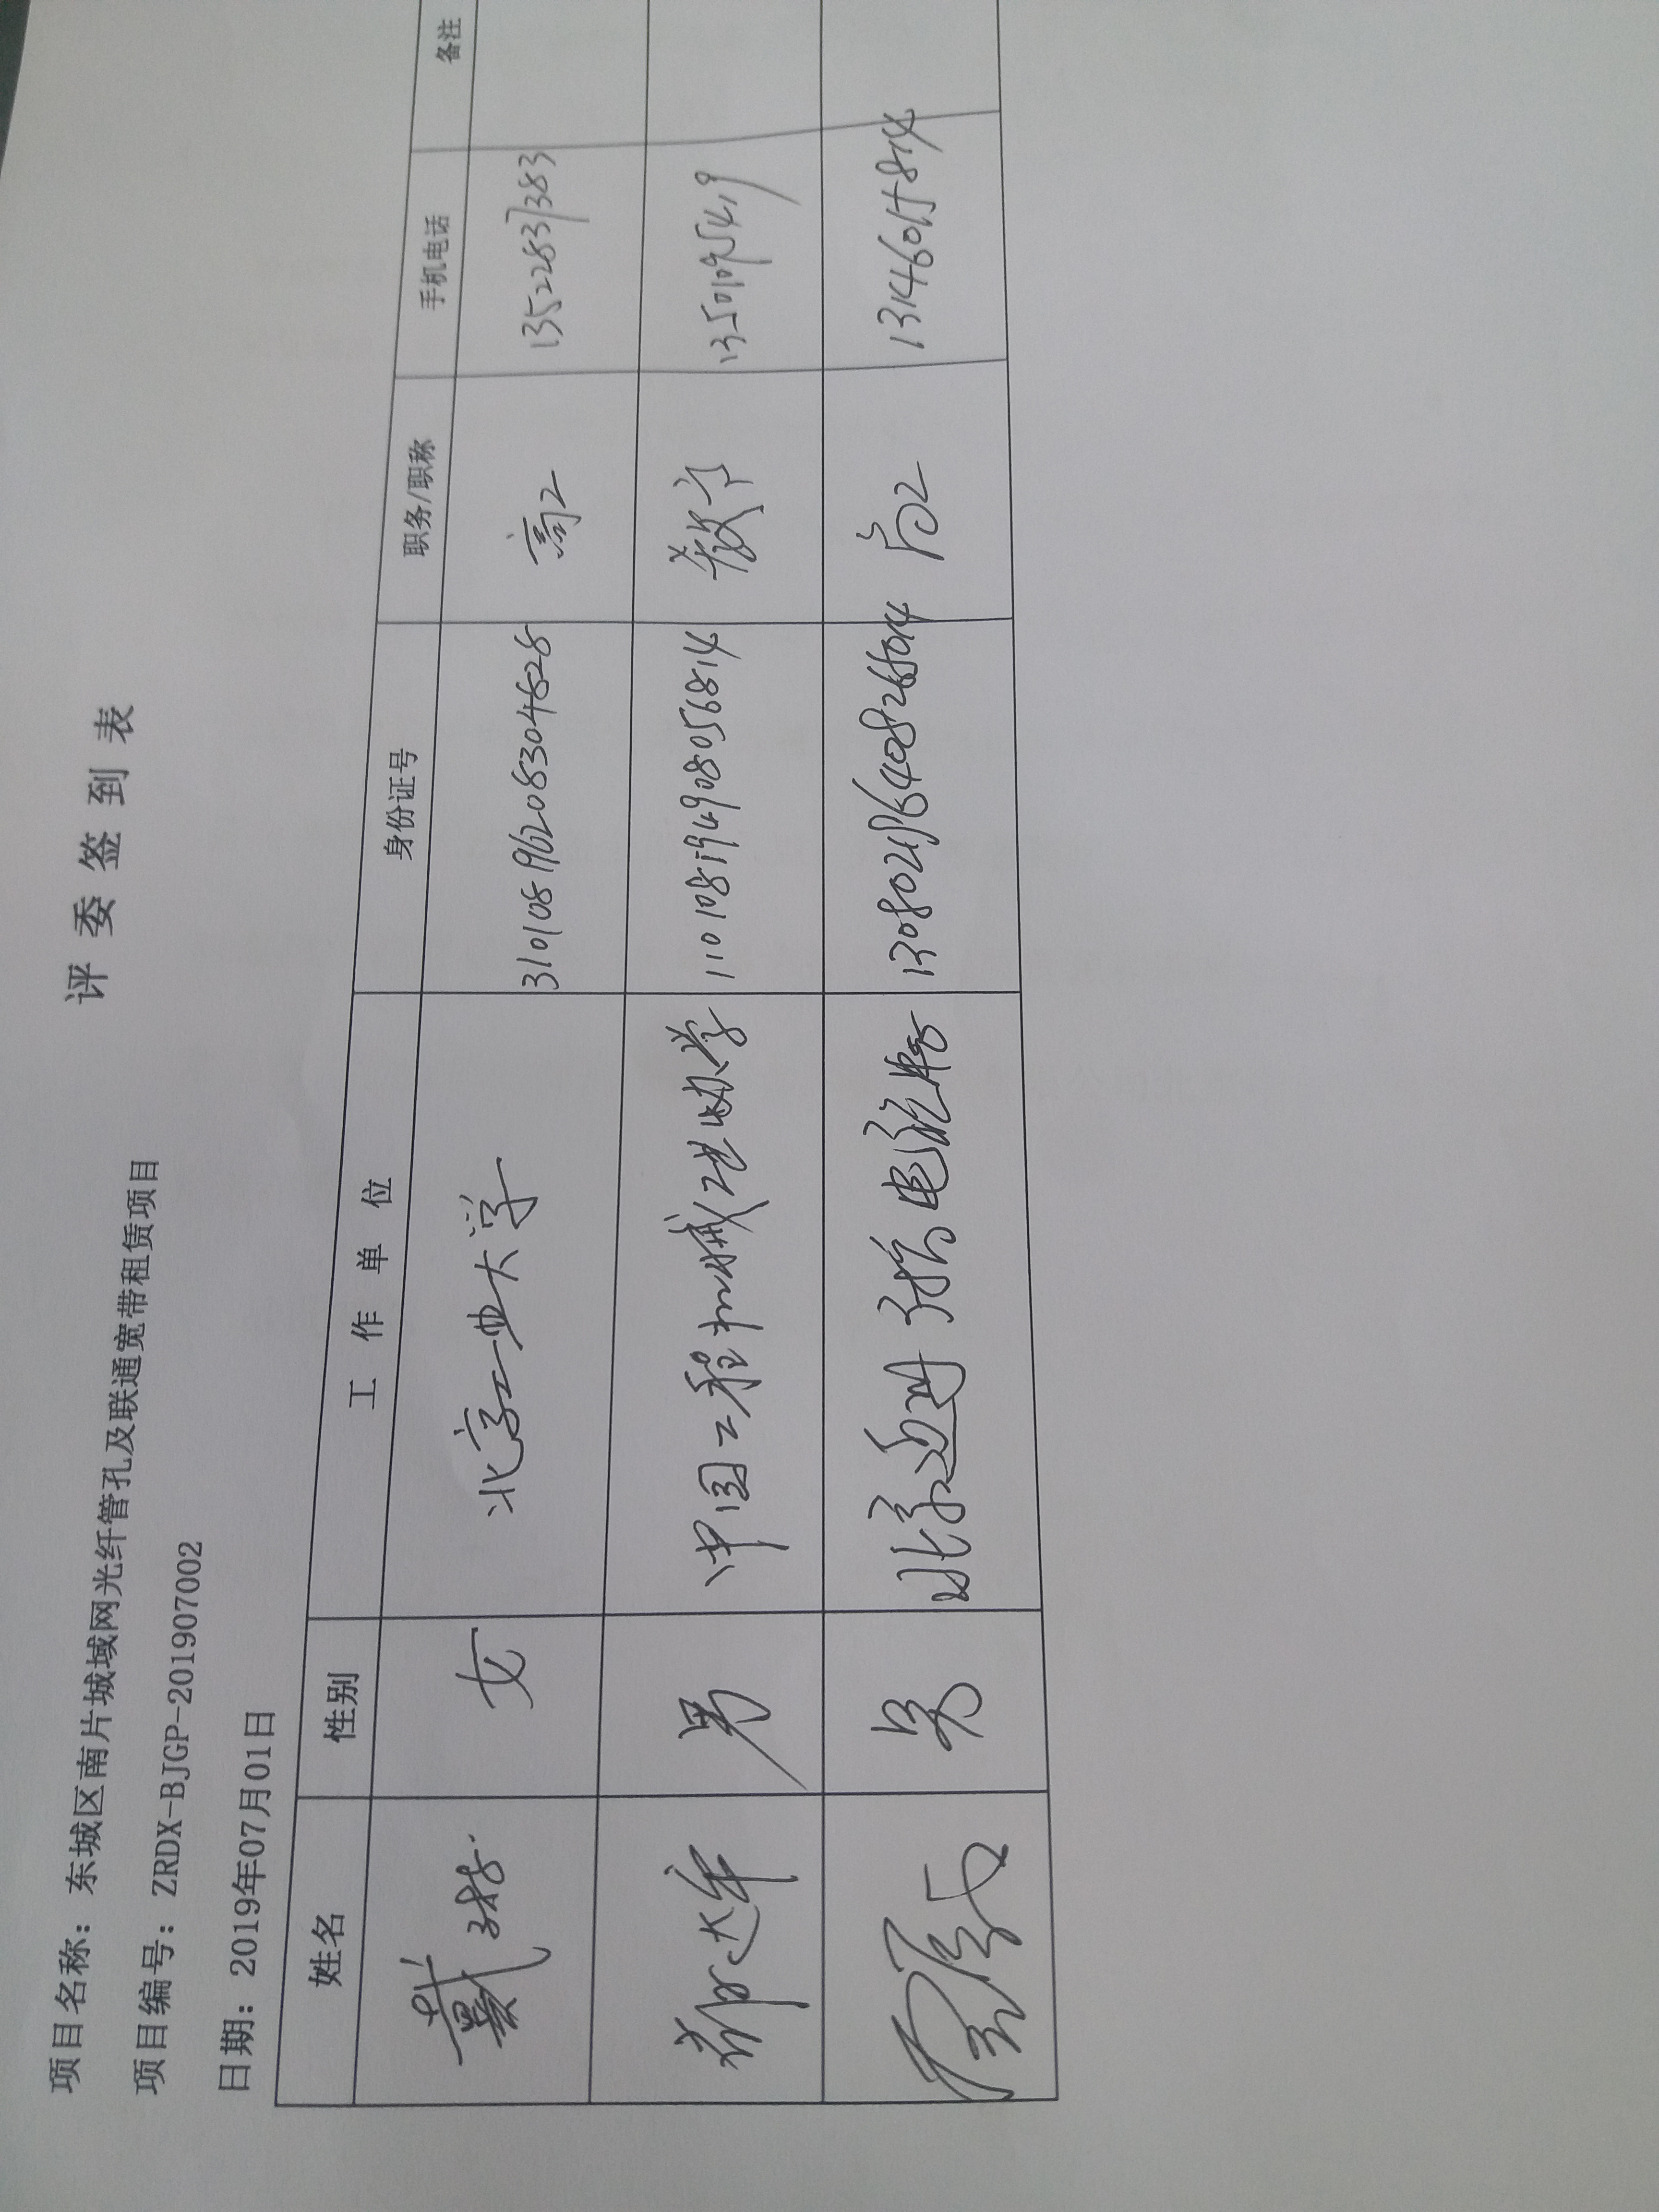 评委签到表
项目名称：东城区南片城域网光纤管孔及联通宽带租赁项目
项目编号：ZRDX-BJGP-201907002
日期：2019年07月01日
姓名 性别 工作单位 身份证号 职务/职称 手机电话 备注
戴 女 北京工业大学 310108196208304828 高工 13522837383
郑大年 男 中国工程机械工业协学 110108194908056814 教高 13501095419
男 北京 电 高工 13146015814